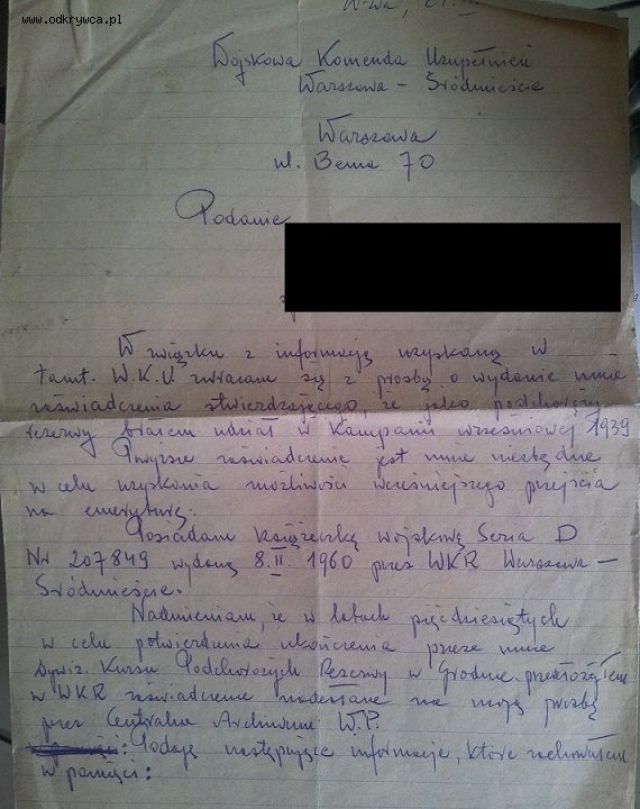 www.odkrywca.pl
W-wa,
Wojskowa Komenda Uzupełnień
Warszawa - Śródmieście
Warszawa
ul. Bema 70
Podanie
W związku z informacją uzyskaną w
tamt. W.K.U. zwracam się z prośbą o wydanie mnie
zaświadczenia stwierdzającego, że jako podchorąży
rezerwy brałem udział w Kampanii wrześniowej 1939
Powyższe zaświadczenie jest mnie niezbędne
w celu uzyskania możliwości wcześniejszego przejścia
na emeryturę.
Posiadam książeczkę wojskową Seria D
Nr 207849 wydaną 8.II. 1960 przez WKR Warszawa -
Śródmieście.
Nadmieniam, że w latach pięćdziesiątych
w celu potwierdzenia ukończenia przeze mnie
Dywiz. Kursu Podchorążych Rezerwy w Grodnie przedłożyłem
w WKR zaświadczenie nadesłane na moją prośbę
przez Centralne Archiwum W.P.
Podaję następujące informacje, które zachowałem
w pamięci: